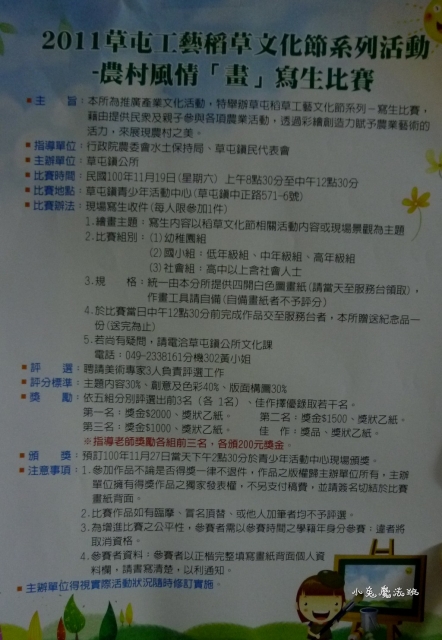 2011草屯工藝稻草文化節系列活動
-農村風情「畫」寫生比賽
主 旨：本所為推廣產業文化活動，特舉辦草屯稻草工藝文化節系列－寫生比賽，
藉由提供民眾及親子參與各項農業活動，透過彩繪創造力賦予農業藝術的
活力，來展現農村之美。
指導單位：行政院農委會水土保持局、草屯鎮民代表會
主辦單位：草屯鎮公所
比賽時間：民國100年11月19日(星期六) 上午8點30分至中午12點30分
比賽地點：草屯鎮青少年活動中心(草屯鎮中正路571-6號)
比賽辦法：現場寫生收件(每人限參加1件)
1.繪畫主題：寫生內容以稻草文化節相關活動內容或現場景觀為主題
2.比賽組別：(1)幼稚園組
(2)國小組：低年級組、中年級組、高年級組
(3)社會組：高中以上含社會人士
3.規 格：統一由本分所提供四開白色圖畫紙(請當天至服務台領取)，
作畫工具請自備(自備畫紙者不予評分)
4.於比賽當日中午12點30分前完成作品交至服務台者，本所贈送紀念品一
份(送完為止)
5.若尚有疑問，請電洽草屯鎮公所文化課
電話：049-2338161分機302黃小姐
評 選：聘請美術專家3人負責評選工作
評分標準：主題內容30%、創意及色彩40%、版面構圖30%
獎 勵：依五組分別評選出前3名（各 1名）、佳作擇優錄取若干名。
第一名：獎金$2000、獎狀乙紙。 第二名：獎金$1500、獎狀乙紙。
第三名：獎金$1000、獎狀乙紙。 佳 作：獎品、獎狀乙紙。
※指導老師獎勵各組前三名，各頒200元獎金。
頒 獎：預訂100年11月27日當天下午2點30分於青少年活動中心現場頒獎。
注意事項：1.參加作品不論是否得獎一律不退件，作品之版權歸主辦單位所有，主辦
單位擁有得獎作品之獨家發表權，不另支付稿費，並請簽名切結於比賽
畫紙背面。
2.比賽作品如有臨摹、冒名頂替、或他人加筆者均不予評選。
3.為增進比賽之公平性，參賽者需以參賽時間之學籍年身分參賽；違者將
取消資格。
4.參賽者資料：參賽者以正楷完整填寫畫紙背面個人資
料欄，請書寫清楚，以利通知。
主辦單位得視實際活動狀況隨時修訂實施。
小兔魔法班